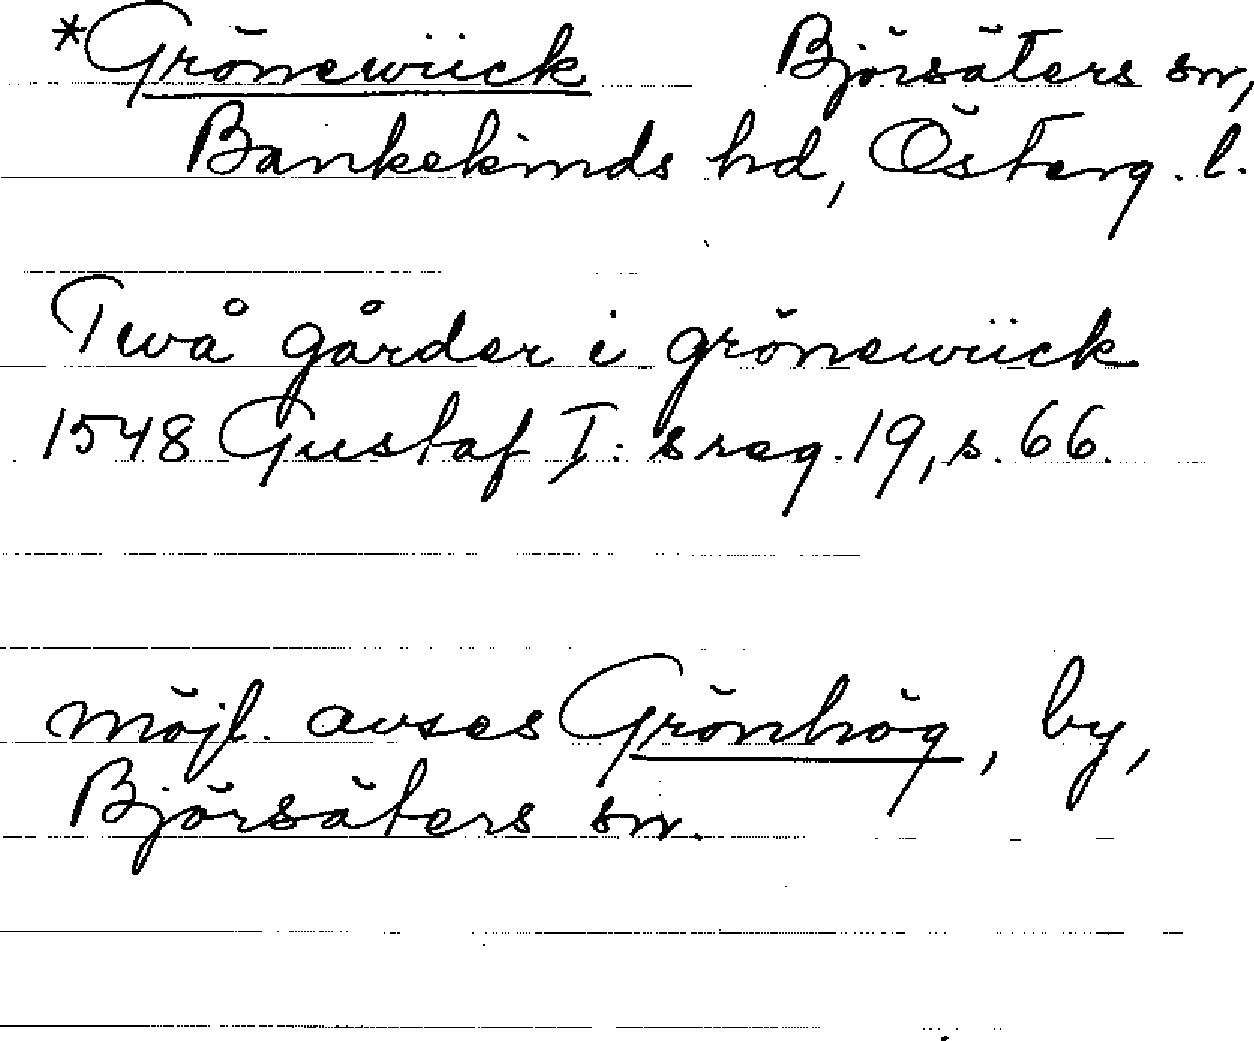 *Grönewiick Björsäters sn,
Bankekinds hd, Österg. l.
Twå gårder i grönewiick
1548 Gustaf I: s reg. 19, s. 66.
möjl. avses Grönhög, by,
Björsäters sn.